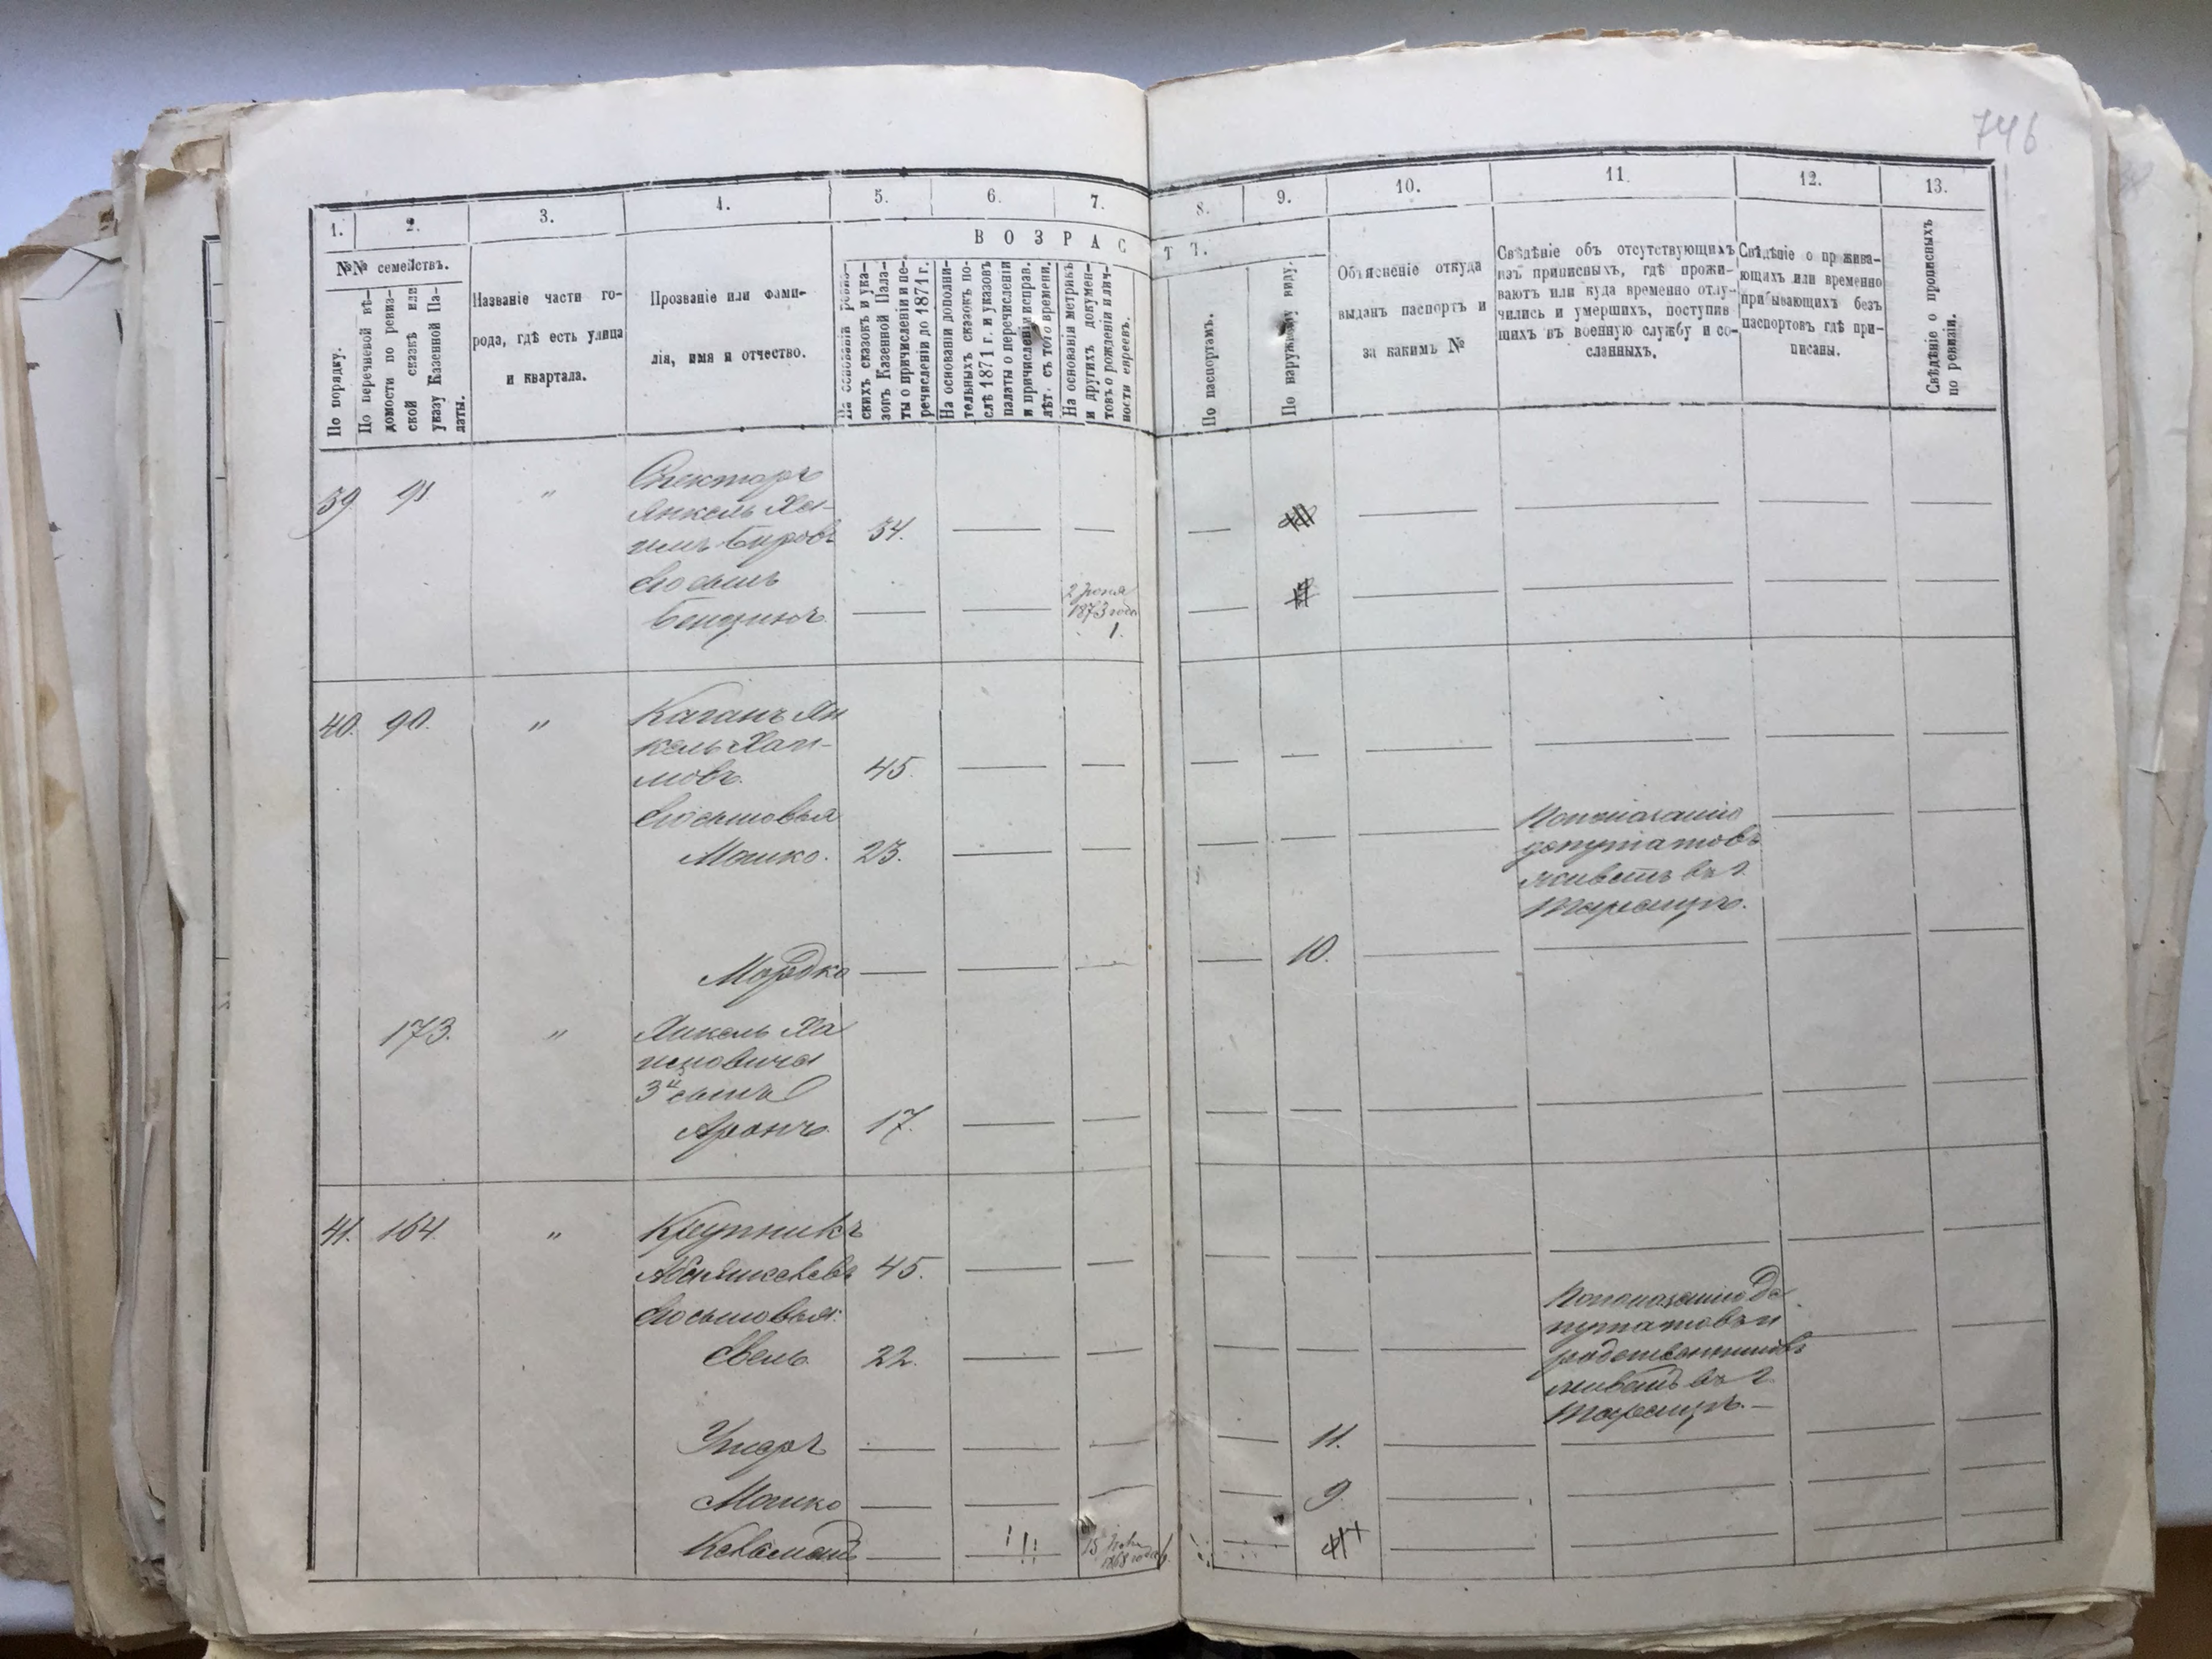 746
1.
2.
3.
4.
5.
6.
7.
8.
9.
10.
11.
12.
13.
№№ семействъ.
По порядку.
По перечневой вѣ-
домости по ревиз-
ской сказкѣ или
указу Казенной Па-
латы.
Названіе части го-
рода, гдѣ есть улица
и квартала.
Прозваніе или фами-
лія, имя и отчество.
ВОЗРАСТЪ.
На основаніи ревиз-
скихъ сказокъ и ука-
зовъ Казенной Пала-
ты о причисленіи и пе-
речисленіи до 1871 г.
На основаніи дополни-
тельныхъ сказокъ по-
слѣ 1871 г. и указовъ
палаты о перечисленіи
и причисленіи исправ.
лѣт. съ того времени.
На основаніи метрикъ
и другихъ докумен-
товъ о рожденіи и лич-
ности евреевъ.
По паспортамъ.
По наружному виду.
Объясненіе откуда
выданъ паспортъ и
за какимъ №
Свѣдѣніе объ отсутствующихъ
изъ приписныхъ, гдѣ прожи-
ваютъ или куда временно отлу-
чились и умершихъ, поступив
шихъ въ военную службу и со-
сланныхъ.
Свѣдѣніе о прожива-
ющихъ или временно
прибывающихъ безъ
паспортовъ гдѣ при-
писаны.
Свѣдѣніе о прописныхъ
по ревизіи.
39 91 "
Спекторъ
Янкель Ха-
имъ Беровъ 34.
Его сынъ
Бенционъ
2 Іюня
1873 года
1.
40. 90. "
Каганъ Ян
кель Хаи-
мовъ. 45.
Его сыновья
Мошко. 23.
По показанію
депутатовъ
живетъ въ г.
Таращѣ.
Мордко 10.
173. "
Янкель Ха
имовича
3й сынъ
Аронъ 17.
41. 164. "
Крупникъ
Аба Янкелевъ 45.
Его сыновья:
Свель 22.
По показанію де
путатовъ и
родственниковъ
живетъ въ г.
Таращѣ.
Ушеръ 11.
Мошко 9.
15
1868 года